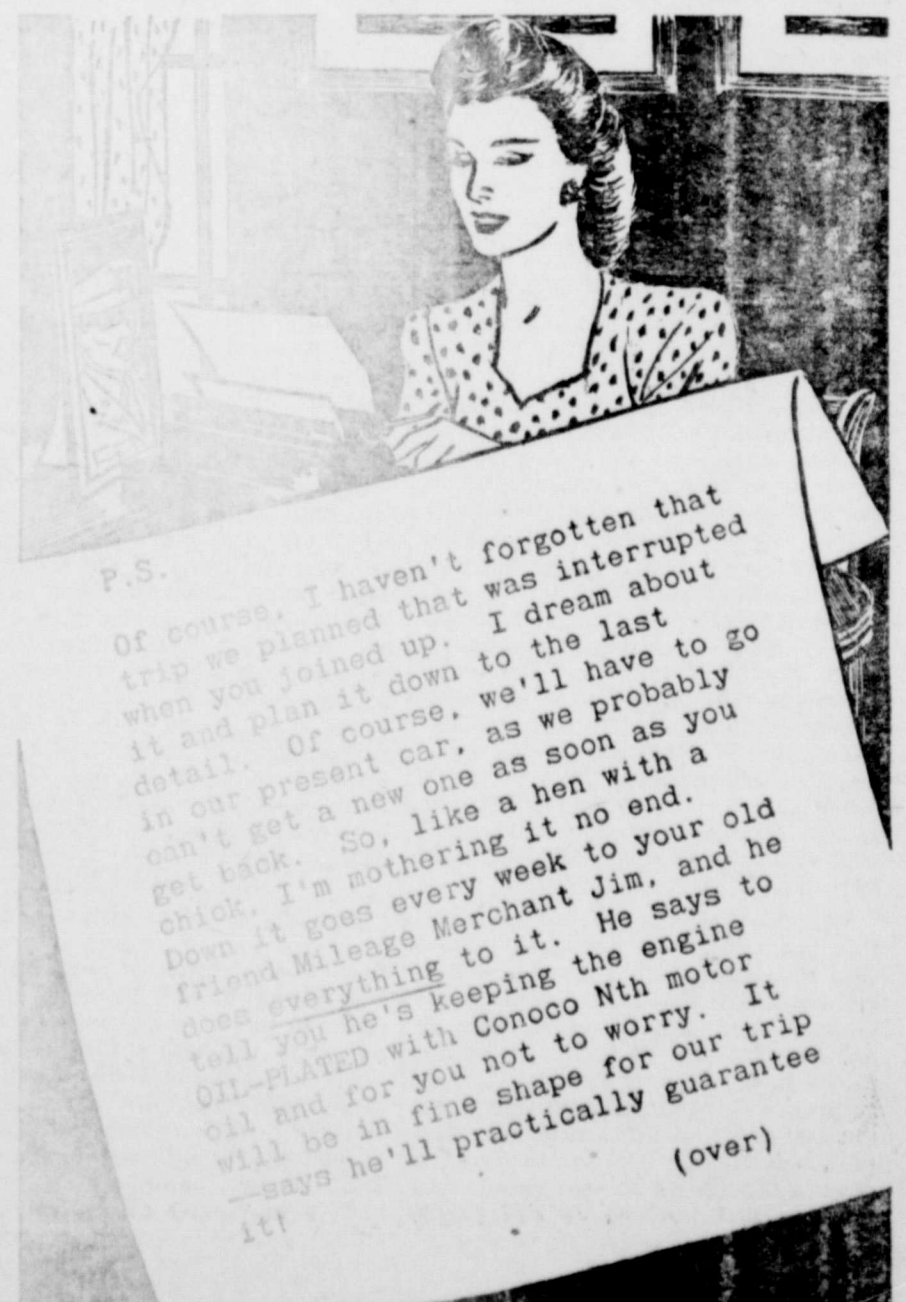 P.S.
Of course, I haven't forgotten that
trip we planned that was interrupted
when you joined up. I dream about
it and plan it down to the last
detail. Of course, we'll have to go
in our present car, as we probably
can't get a new one as soon as you
get back. So, like a hen with a
chick, I'm mothering it no end.
Down it goes every week to your old
friend Mileage Merchant Jim, and he
does everything to it. He says to
tell you he's keeping the engine
OIL-PLATED with Conoco Nth motor
oil and for you not to worry. It
will be in fine shape for our trip
—says he'll practically guarantee
it!
(over)